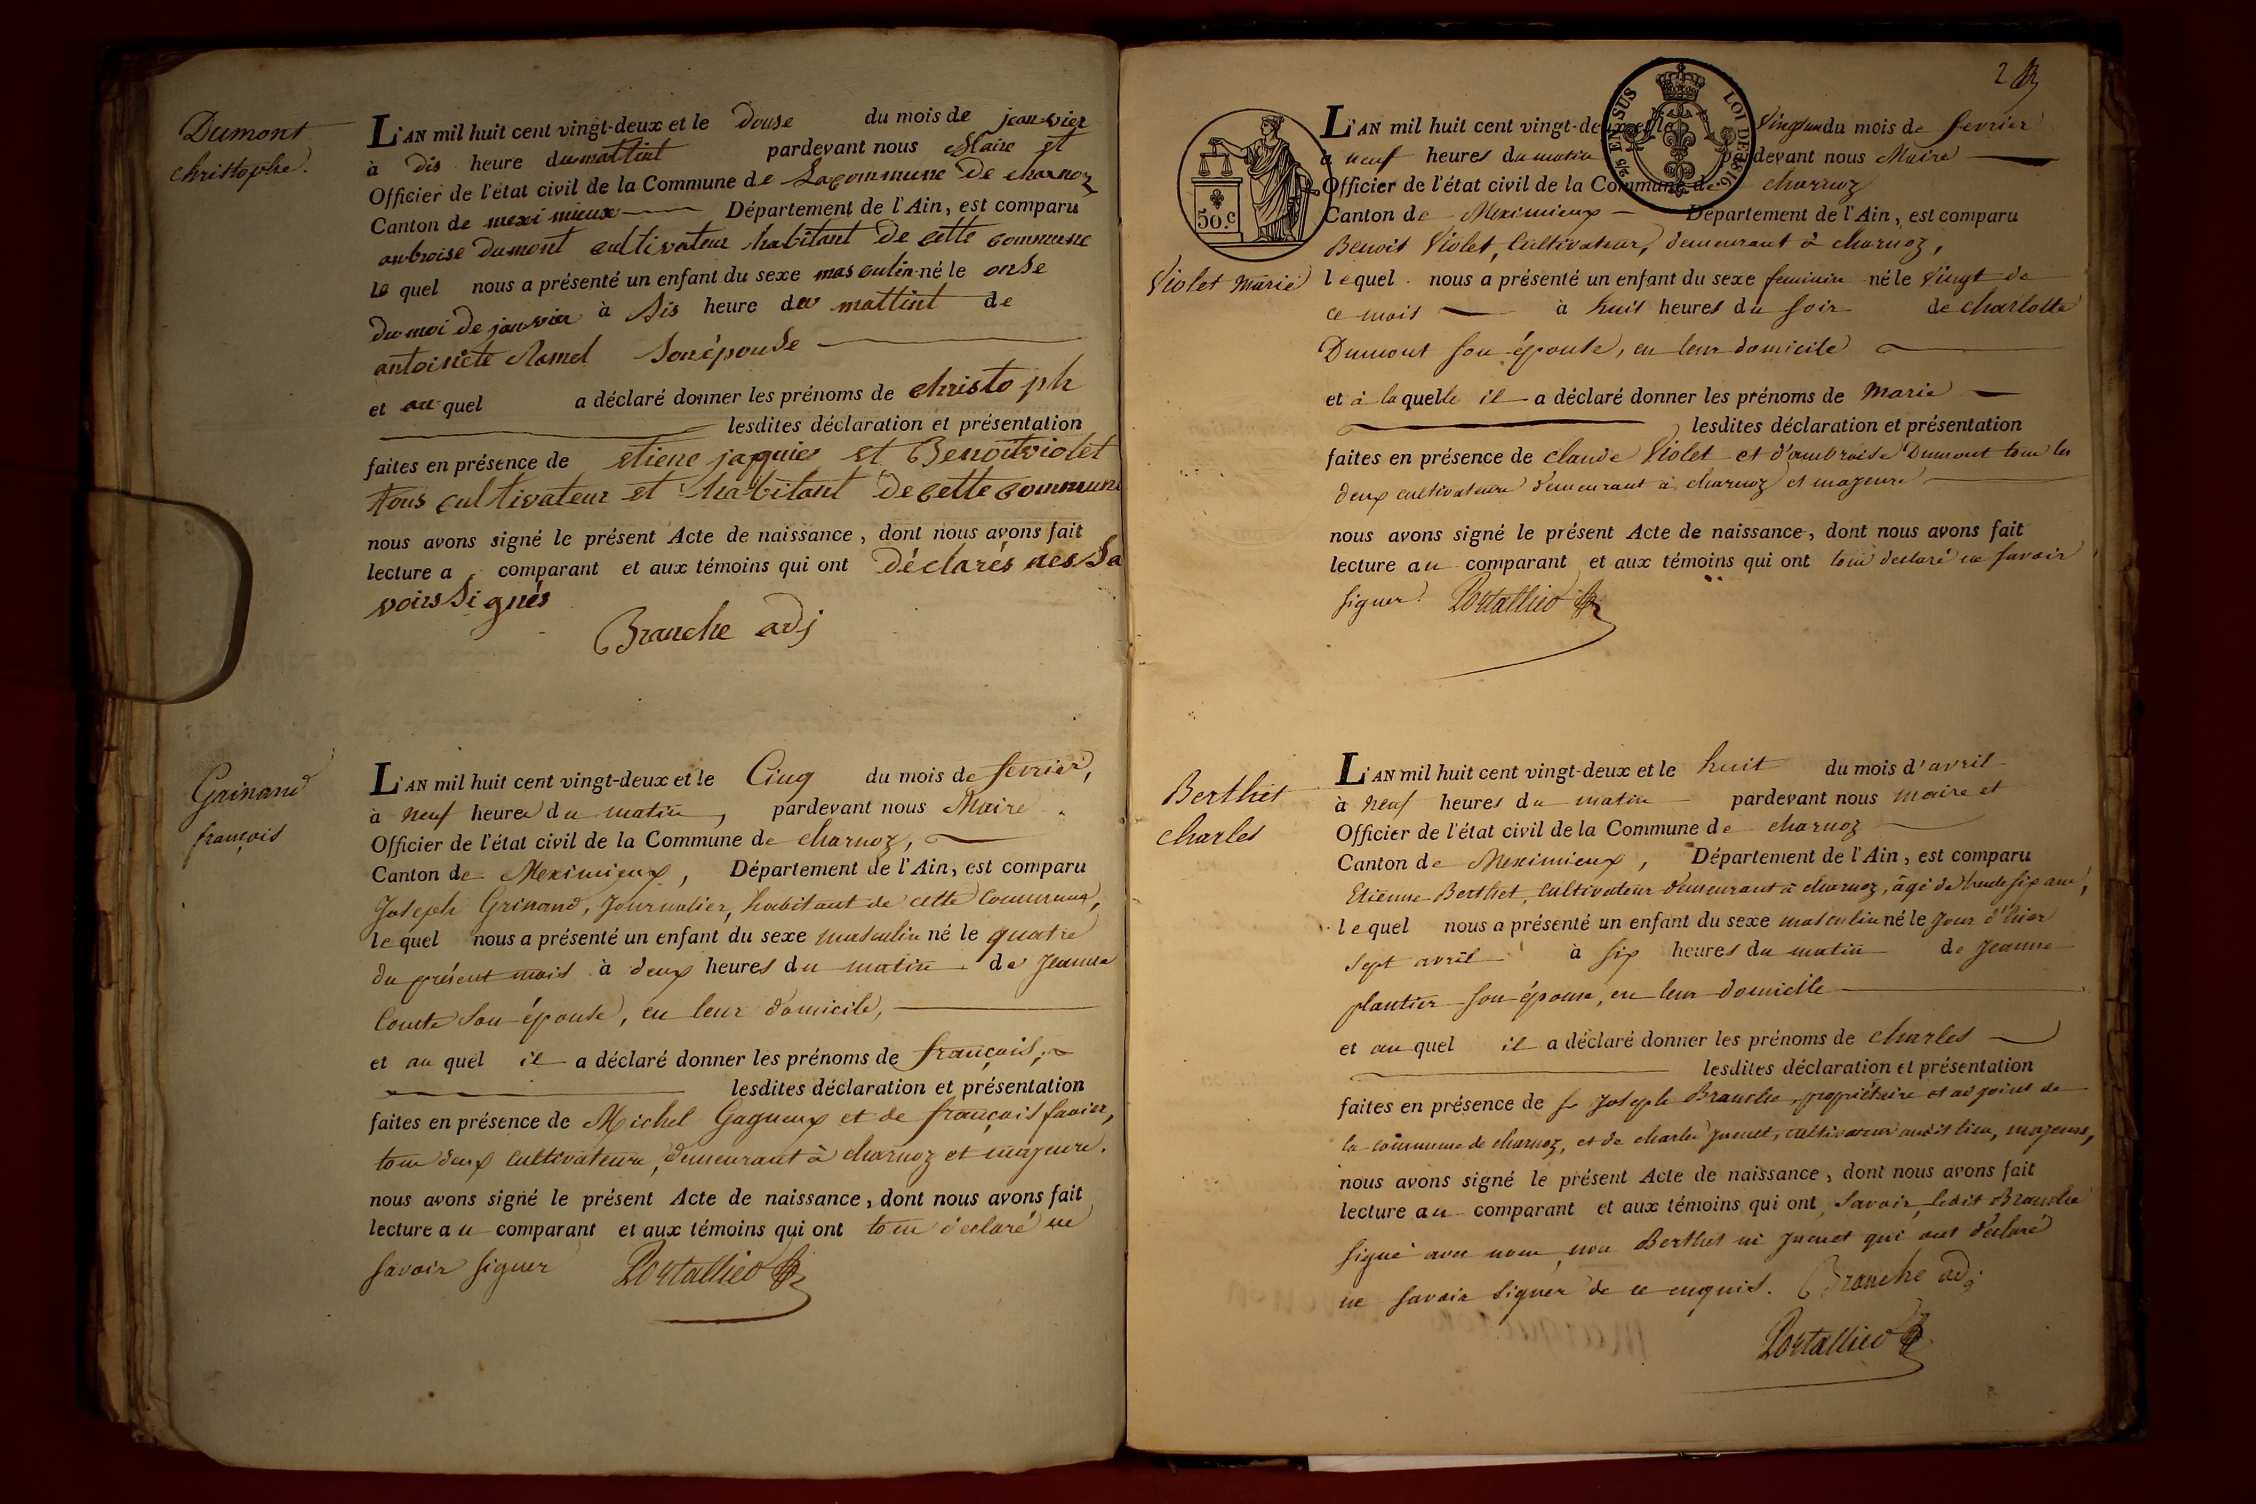 Dumont
christophe.
L'AN mil huit cent vingt-deux et le douse du mois de jeanvier
à dis heure du mattint pardevant nous Maire et
Officier de l'état civil de la Commune de Lacommune de charnoz
Canton de meximieux Département de l'Ain, est comparu
anbroise dumont cultivateur habitant de cette commune
le quel nous a présenté un enfant du sexe masculin né le onse
du moi de janvier à sis heure du mattint de
antoinete Ramel son épouse
et au quel a déclaré donner les prénoms de christoph
lesdites déclaration et présentation
faites en présence de etiene jaquier et Benoit violet
tous cultivateur et habitant de cette commune
nous avons signé le présent Acte de naissance, dont nous avons fait
lecture a comparant et aux témoins qui ont déclarés nes sa
voir signés
Branche adj
Grinand
françois
L'AN mil huit cent vingt-deux et le Cinq du mois de fevrier,
à neuf heures du matin, pardevant nous Maire
Officier de l'état civil de la Commune de charnoz,
Canton de Meximieux, Département de l'Ain, est comparu
Joseph Grinand, Journalier, habitant de cette Commune,
lequel nous a présenté un enfant du sexe masculin né le quatre
du présent mois à deux heures du matin de Jeanne
Comte son épouse, en leur domicile,
et au quel il a déclaré donner les prénoms de françois,
lesdites déclaration et présentation
faites en présence de Michel Gagneux et de françois favier,
tous deux cultivateurs, demeurant à charnoz et majeurs.
nous avons signé le présent Acte de naissance, dont nous avons fait
lecture au comparant et aux témoins qui ont tous déclaré ne
savoir signer Portallier
2
50.c
25 EN SUS LOI DE 1816.
Violet Marie
L'AN mil huit cent vingt-deux et le vingtun du mois de fevrier
à neuf heures du matin pardevant nous Maire
Officier de l'état civil de la Commune de charnoz
Canton de Meximieux Département de l'Ain, est comparu
Benoit Violet, Cultivateur, demeurant à charnoz,
lequel nous a présenté un enfant du sexe feminin né le vingt de
ce mois à huit heures du soir de charlotte
Dumont son épouse, en leur domicile
et à laquelle il a déclaré donner les prénoms de Marie
lesdites déclaration et présentation
faites en présence de claude Violet et d'ambroise Dumont tous les
deux cultivateurs demeurant à charnoz et majeurs
nous avons signé le présent Acte de naissance, dont nous avons fait
lecture au comparant et aux témoins qui ont tous déclaré ne savoir
signer. Portallier
Berthet
charles
L'AN mil huit cent vingt-deux et le huit du mois d'avril
à neuf heures du matin pardevant nous maire et
Officier de l'état civil de la Commune de charnoz
Canton de Meximieux, Département de l'Ain, est comparu
Etienne Berthet, Cultivateur demeurant à charnoz, âgé de trente six ans,
lequel nous a présenté un enfant du sexe masculin né le jour d'hier
sept avril à six heures du matin de Jeanne
plantier son épouse, en leur domicile
et au quel il a déclaré donner les prénoms de charles
lesdites déclaration et présentation
faites en présence de Sr Joseph Branche, propriétaire et adjoint de
la commune de charnoz, et de charles Juenet, cultivateur audit lieu, majeurs,
nous avons signé le présent Acte de naissance, dont nous avons fait
lecture au comparant et aux témoins qui ont, savoir, ledit Branche
signé avec nous, non Berthet ni Juenet qui ont déclaré
ne savoir signer de ce enquis. Branche adj.
Portallier